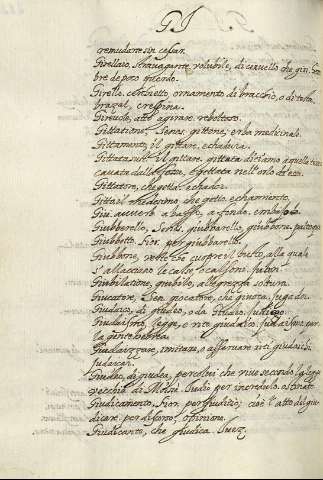 GI.
cremudarte sin cessar.
Girellaio, stravagante, volubile, di cervello che giri. hom
bre de poco
Girella, cerchietto, ornamento di braccio, o di testa
brazal,
Girevole, atto a girare
Gittaione, Senes. gittone, erba medicinale.
Gittamento, il gittare, echadura.
Gittata sust. il gittare. gittata diciamo a quella terra
cavata dalla fossa, e gettata nell'orlo di essa.
Gittatore, che getta. echador.
Gitto il medesimo che getto, echamiento.
Giù. avverbo a basso, a fondo.
Giubberello, Senes. giubbarello, giubbone.
Giubbetto. Fior. per giubbarello.
Giubbone, veste che cuopre il busto, alla quale
s'allacciano le calze, o calzoni. jubon.
Giubilatione, giubilo, allegrezza
Giucatore, Sen. giocatore, che giuoca, jugador.
Giudaico, di giudeo, o da Giudeo. judiego.
Giudaismo, legge, o rito giudaico. judaismo per
la gente hebrea.
Giudaizzare, imitare, o osservare riti giudaichi.
judaizar.
Giudeo, di giudea, per colui che vive secondo la legge
vecchia di Moisè. Giudeo per incredulo. ostinato
Giudicamento. Fior. per giuditio; cioè l'atto del giu
dicare. per discorso, opinione.
Giudicante, che giudica. Juez.